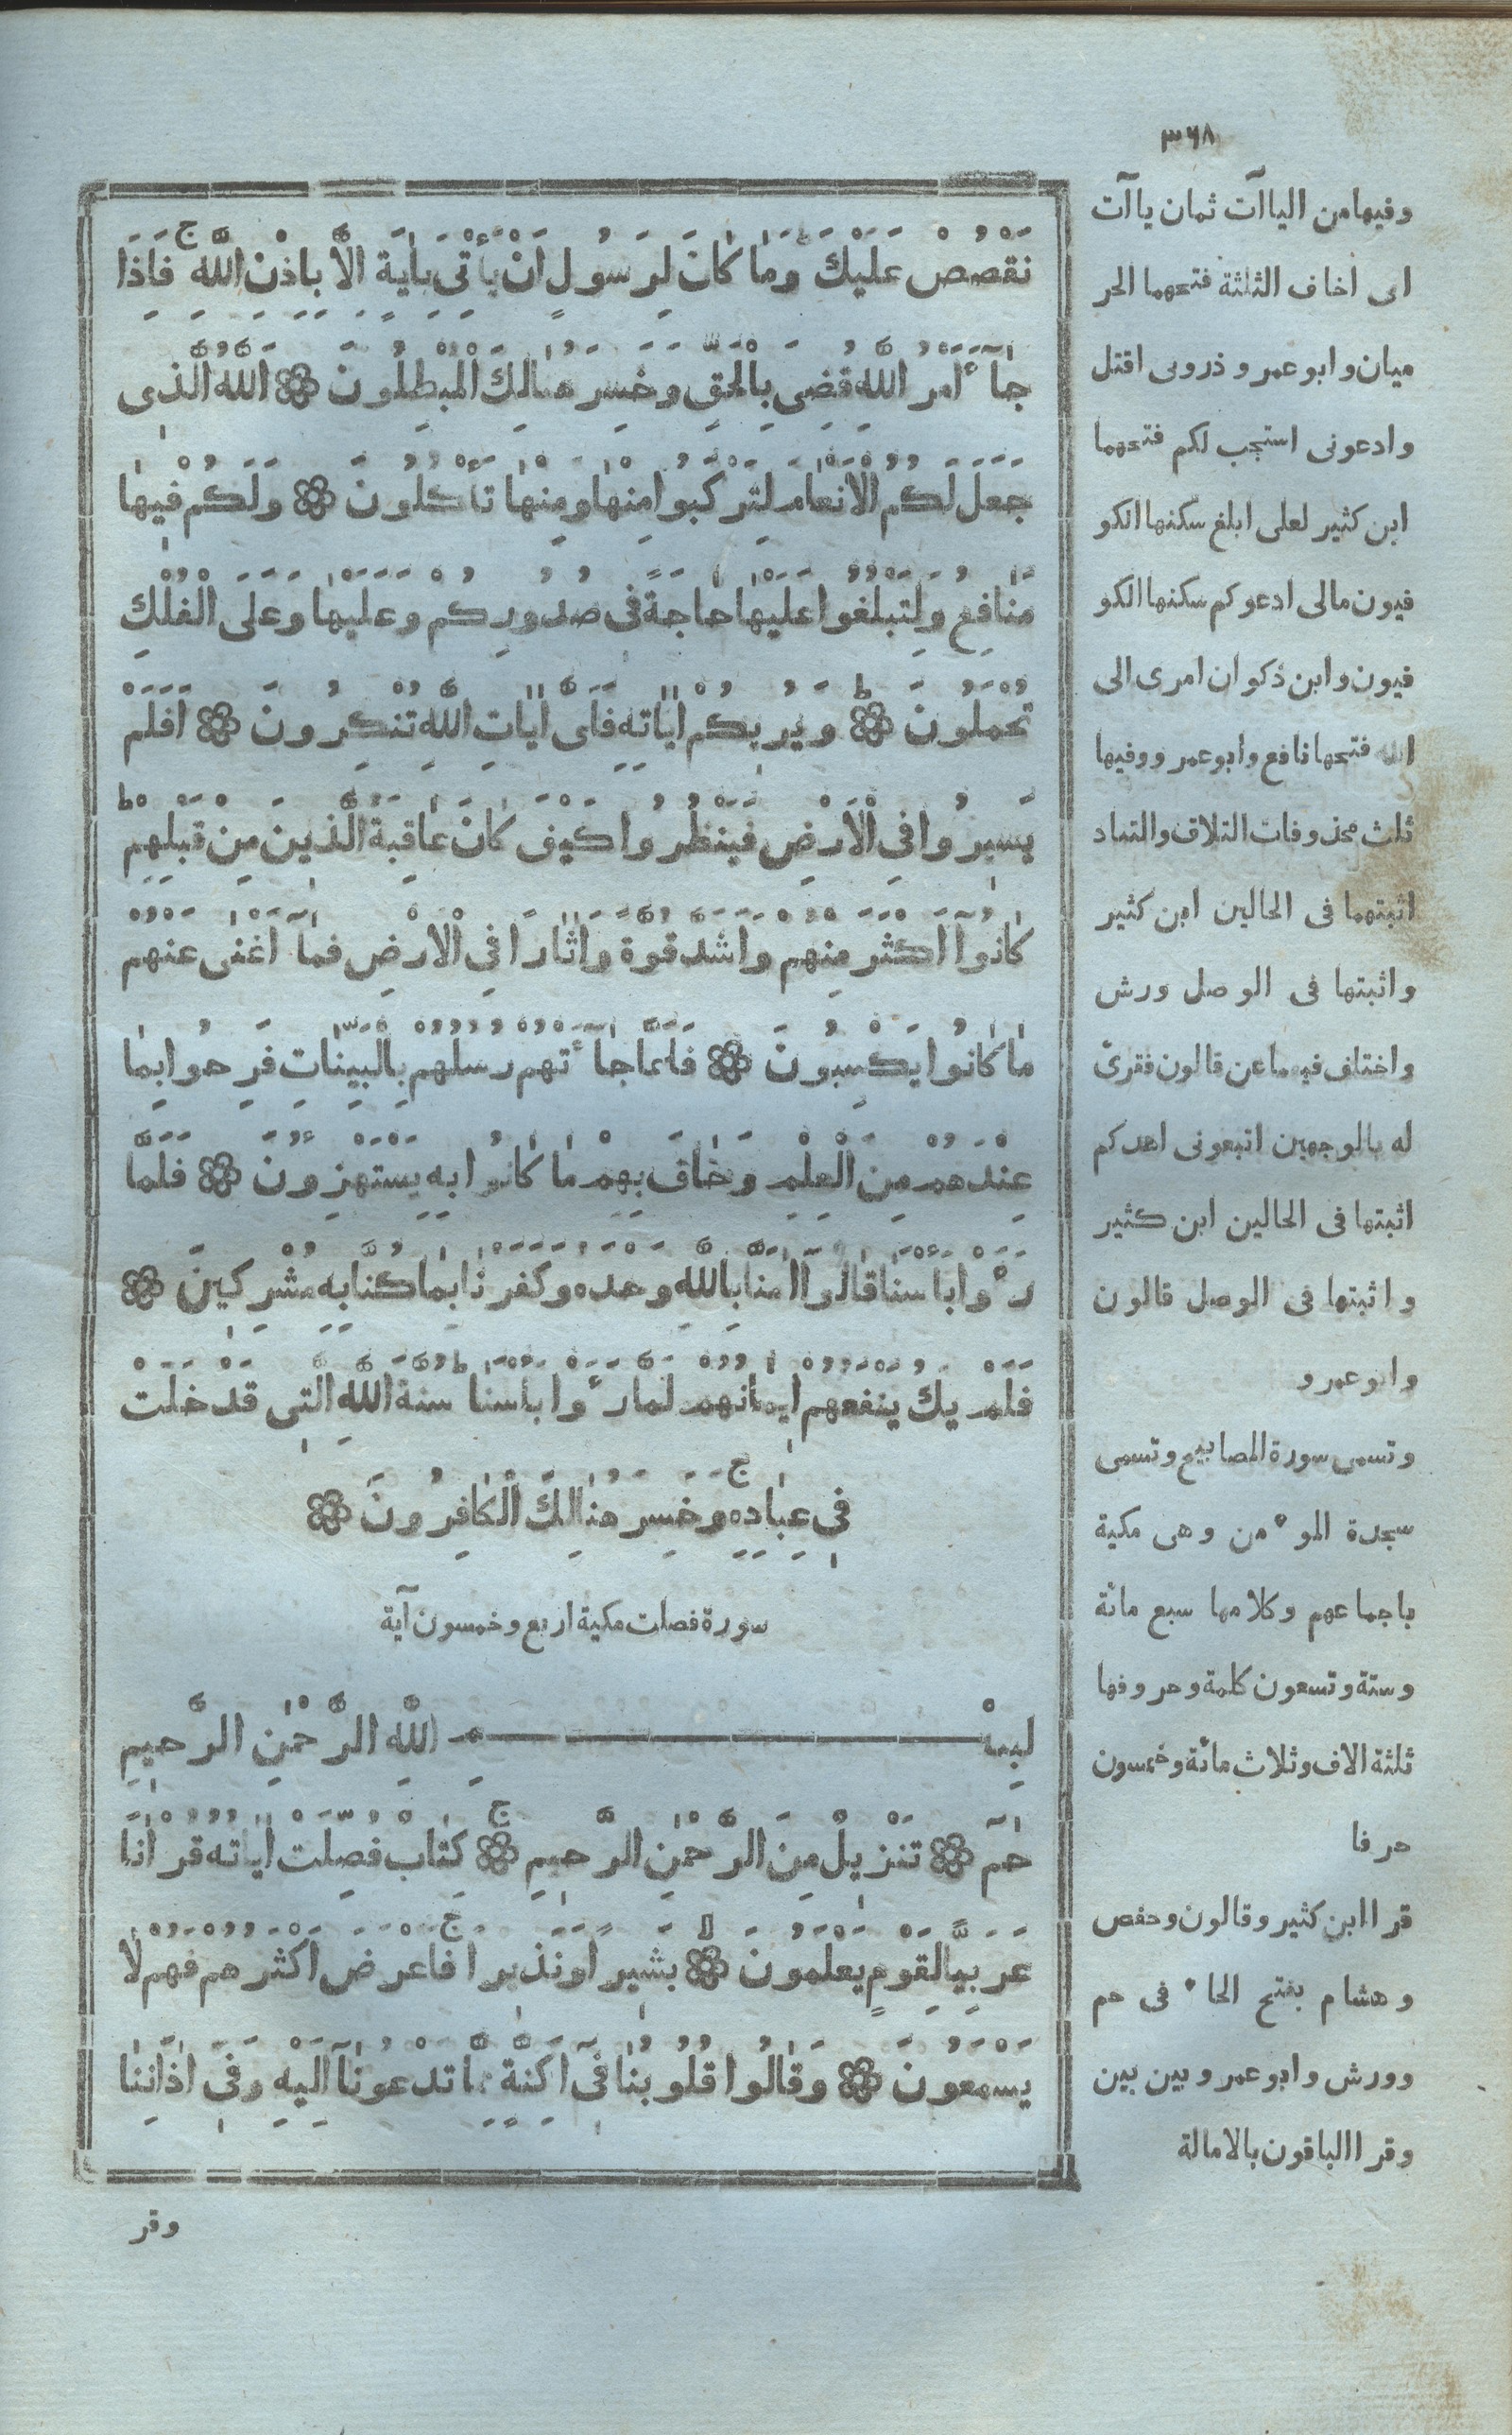 ٣٦٨
نَقْصُصْ عَلَيْكَ وَمَا كَانَ لِرَسُولٍ اَنْ يَأْتِىَ بِاٰيَةٍ اِلَّا بِاِذْنِ اللّٰهِ ج فَاِذَا
جَآءَ اَمْرُ اللّٰهِ قُضِىَ بِالْحَقِّ وَخَسِرَ هُنَالِكَ الْمُبْطِلُونَ ۞ اَللّٰهُ الَّذِى
جَعَلَ لَكُمُ الْاَنْعَامَ لِتَرْكَبُوا مِنْهَا وَمِنْهَا تَأْكُلُونَ ۞ وَلَكُمْ فِيهَا
مَنَافِعُ وَلِتَبْلُغُوا عَلَيْهَا حَاجَةً فِى صُدُورِكُمْ وَعَلَيْهَا وَعَلَى الْفُلْكِ
تُحْمَلُونَ ط ۞ وَيُرِيكُمْ اٰيَاتِهِ فَاَىَّ اٰيَاتِ اللّٰهِ تُنْكِرُونَ ۞ اَفَلَمْ
يَسِيرُوا فِى الْاَرْضِ فَيَنْظُرُوا كَيْفَ كَانَ عَاقِبَةُ الَّذِينَ مِنْ قَبْلِهِمْ ط
كَانُوآ اَكْثَرَ مِنْهُمْ وَاَشَدَّ قُوَّةً وَاٰثَارًا فِى الْاَرْضِ فَمَآ اَغْنٰى عَنْهُمْ
مَا كَانُوا يَكْسِبُونَ ۞ فَلَمَّا جَآءَتْهُمْ رُسُلُهُمْ بِالْبَيِّنَاتِ فَرِحُوا بِمَا
عِنْدَهُمْ مِنَ الْعِلْمِ وَحَاقَ بِهِمْ مَا كَانُوا بِهِ يَسْتَهْزِؤُنَ ۞ فَلَمَّا
رَاَوْا بَأْسَنَا قَالُوآ اٰمَنَّا بِاللّٰهِ وَحْدَهُ وَكَفَرْنَا بِمَا كُنَّا بِهِ مُشْرِكِينَ ۞
فَلَمْ يَكُ يَنْفَعُهُمْ اِيمَانُهُمْ لَمَّا رَاَوْا بَأْسَنَا ط سُنَّةَ اللّٰهِ الَّتِى قَدْ خَلَتْ
فِى عِبَادِهِ ج وَخَسِرَ هُنَالِكَ الْكَافِرُونَ ۞
سورة فصلت مكية اربع وخمسون آية
بِسْمِ اللّٰهِ الرَّحْمٰنِ الرَّحِيمِ
حٰمٓ ۞ تَنْزِيلٌ مِنَ الرَّحْمٰنِ الرَّحِيمِ ج ۞ كِتَابٌ فُصِّلَتْ اٰيَاتُهُ قُرْاٰنًا
عَرَبِيًّا لِقَوْمٍ يَعْلَمُونَ لا ۞ بَشِيرًا وَنَذِيرًا ج فَاَعْرَضَ اَكْثَرُهُمْ فَهُمْ لَا
يَسْمَعُونَ ۞ وَقَالُوا قُلُوبُنَا فِىٓ اَكِنَّةٍ مِمَّا تَدْعُونَآ اِلَيْهِ وَفِىٓ اٰذَانِنَا
وقر
وفيها من الياآت ثمان ياآت
انى اخاف الثلثة فتحهما الحر
ميان وابو عمرو ذرونى اقتل
وادعونى استجب لكم فتحهما
ابن كثير لعلى ابلغ سكنها الكو
فيون مالى ادعوكم سكنها الكو
فيون وابن ذكوان امرى الى
الله فتحها نافع وابو عمرو وفيها
ثلث محذوفات التلاق والتناد
اثبتهما فى الحالين ابن كثير
واثبتها فى الوصل ورش
واختلف فيهما عن قالون فقرئ
له بالوجهين اتبعونى اهدكم
اثبتها فى الحالين ابن كثير
واثبتها فى الوصل قالون
وابو عمرو
وتسمى سورة المصابيح وتسمى
سجدة المؤمن وهى مكية
باجماعهم وكلامها سبع مائة
وستة وتسعون كلمة وحروفها
ثلثة الاف وثلاث مائة وخمسون
حرفا
قرا ابن كثير وقالون وحفص
وهشام بفتح الحاء فى حم
وورش وابو عمرو بين بين
وقرا الباقون بالامالة